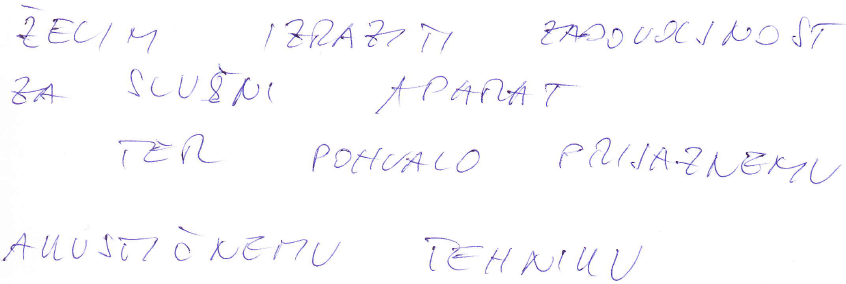 ŽELIM IZRAZITI ZADOVOLJNOST
ZA SLUŠNI APARAT
TER POHVALO PRIJAZNEMU
AKUSTIČNEMU TEHNIKU